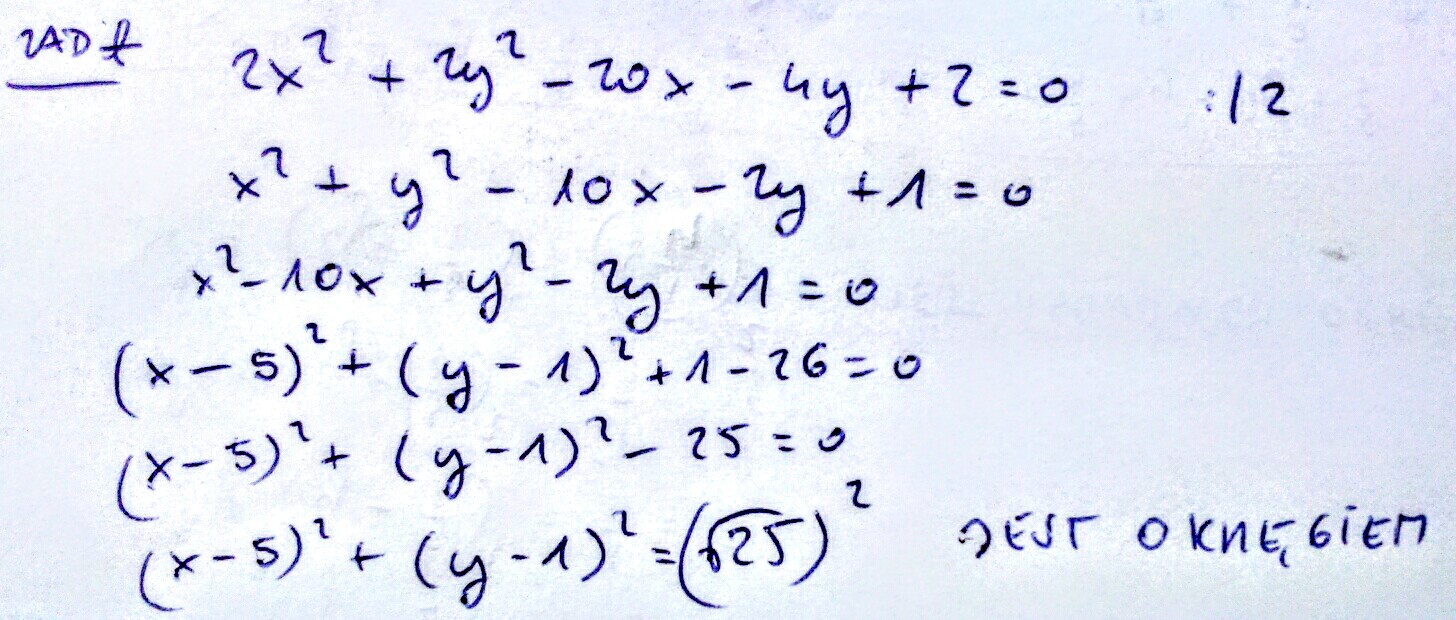 ZAD 1 2x² + 2y² - 20x - 4y + 2 = 0 :/2
x² + y² - 10x - 2y + 1 = 0
x² - 10x + y² - 2y + 1 = 0
(x - 5)² + (y - 1)² + 1 - 26 = 0
(x - 5)² + (y - 1)² - 25 = 0
(x - 5)² + (y - 1)² = (√25)² JEST OKRĘGIEM